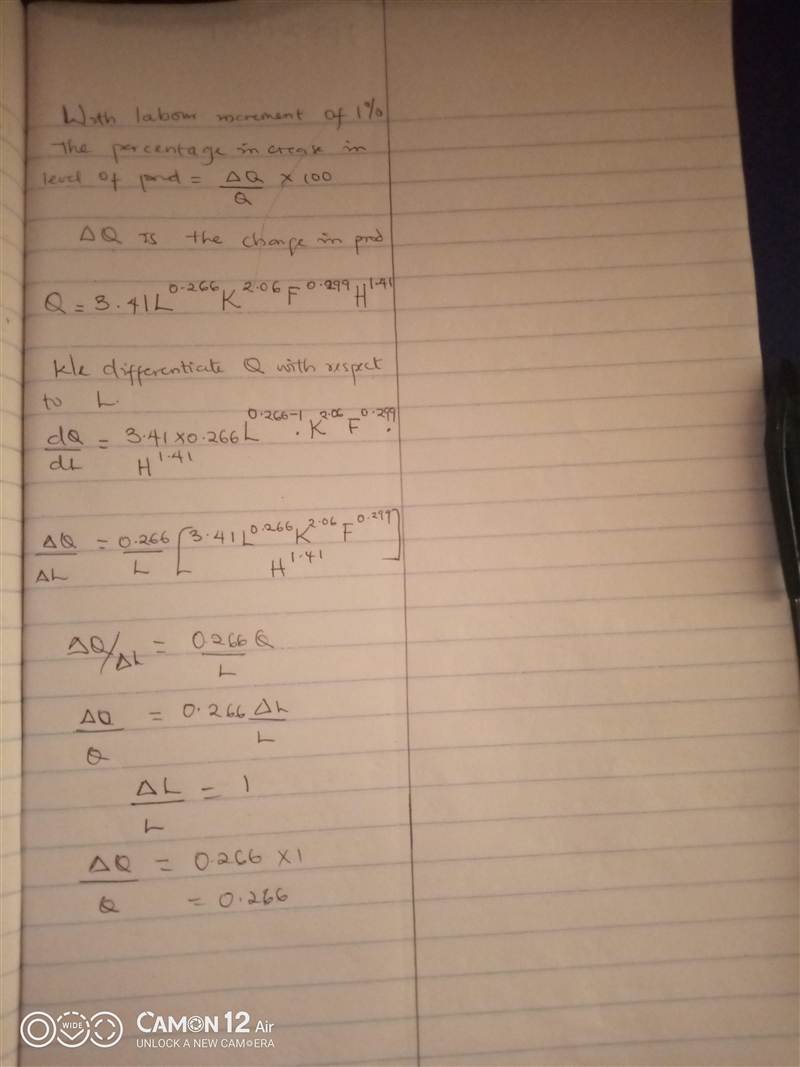 With labour increment of 1%
The percentage increase in
level of prod = ΔQ/Q × 100
ΔQ is the change in prod
Q = 3.41L^0.266 K^2.06 F^0.299 H^1.41
differentiate Q with respect
to L.
dQ/dL = 3.41×0.266L^0.266-1 . K^2.06 F^0.299 .
H^1.41
ΔQ/ΔL = 0.266/L [3.41L^0.266 K^2.06 F^0.299
H^1.41]
ΔQ/ΔL = 0.266Q/L
ΔQ/Q = 0.266 ΔL/L
ΔL/L = 1
ΔQ/Q = 0.266 × 1
= 0.266
WIDE
CAMON 12 Air
UNLOCK A NEW CAMERA